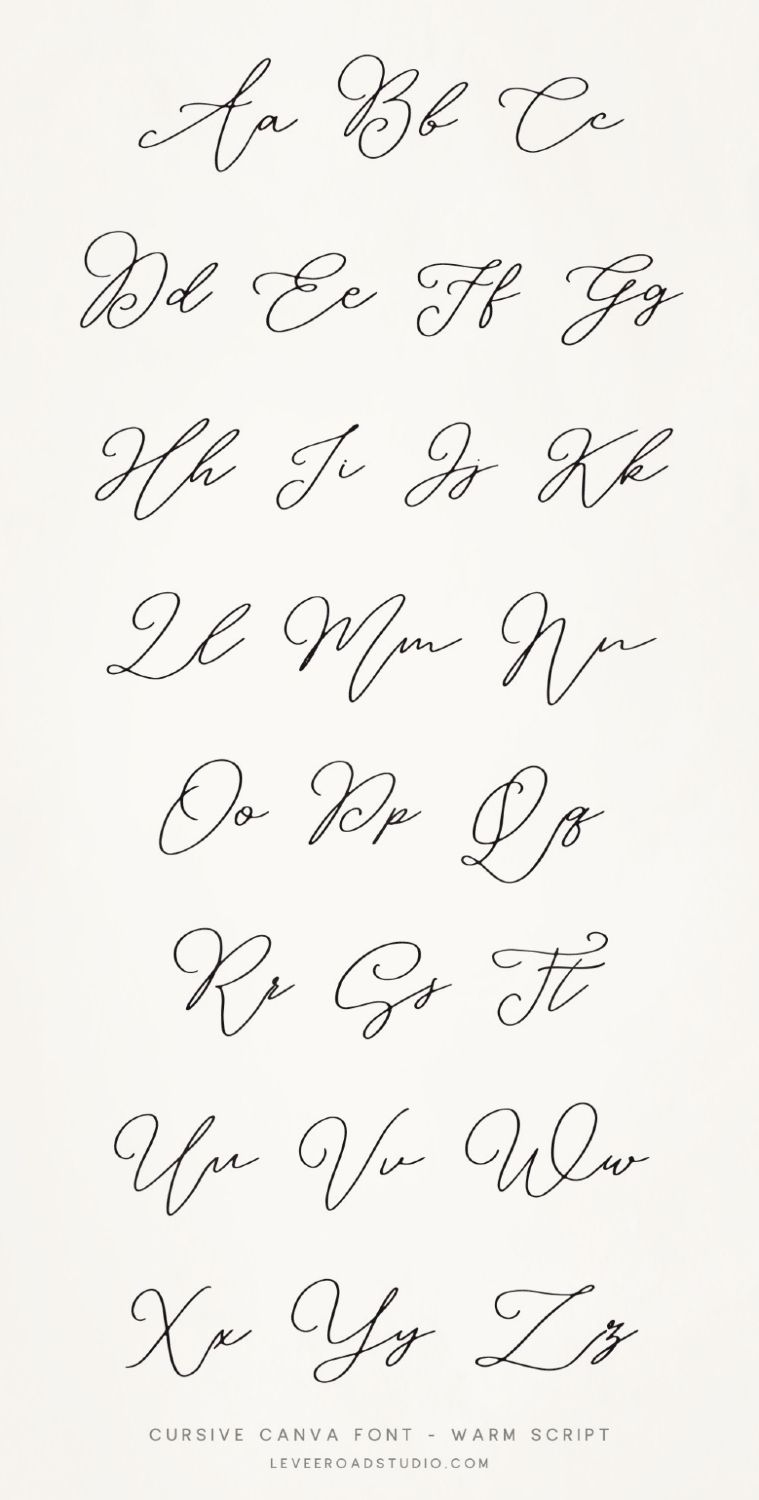 Aa Bb Cc
Dd Ee Ff Gg
Hh Ii Jj Kk
Ll Mm Nn
Oo Pp Qq
Rr Ss Tt
Uu Vv Ww
Xx Yy Zz
CURSIVE CANVA FONT - WARM SCRIPT
LEVEEROADSTUDIO.COM